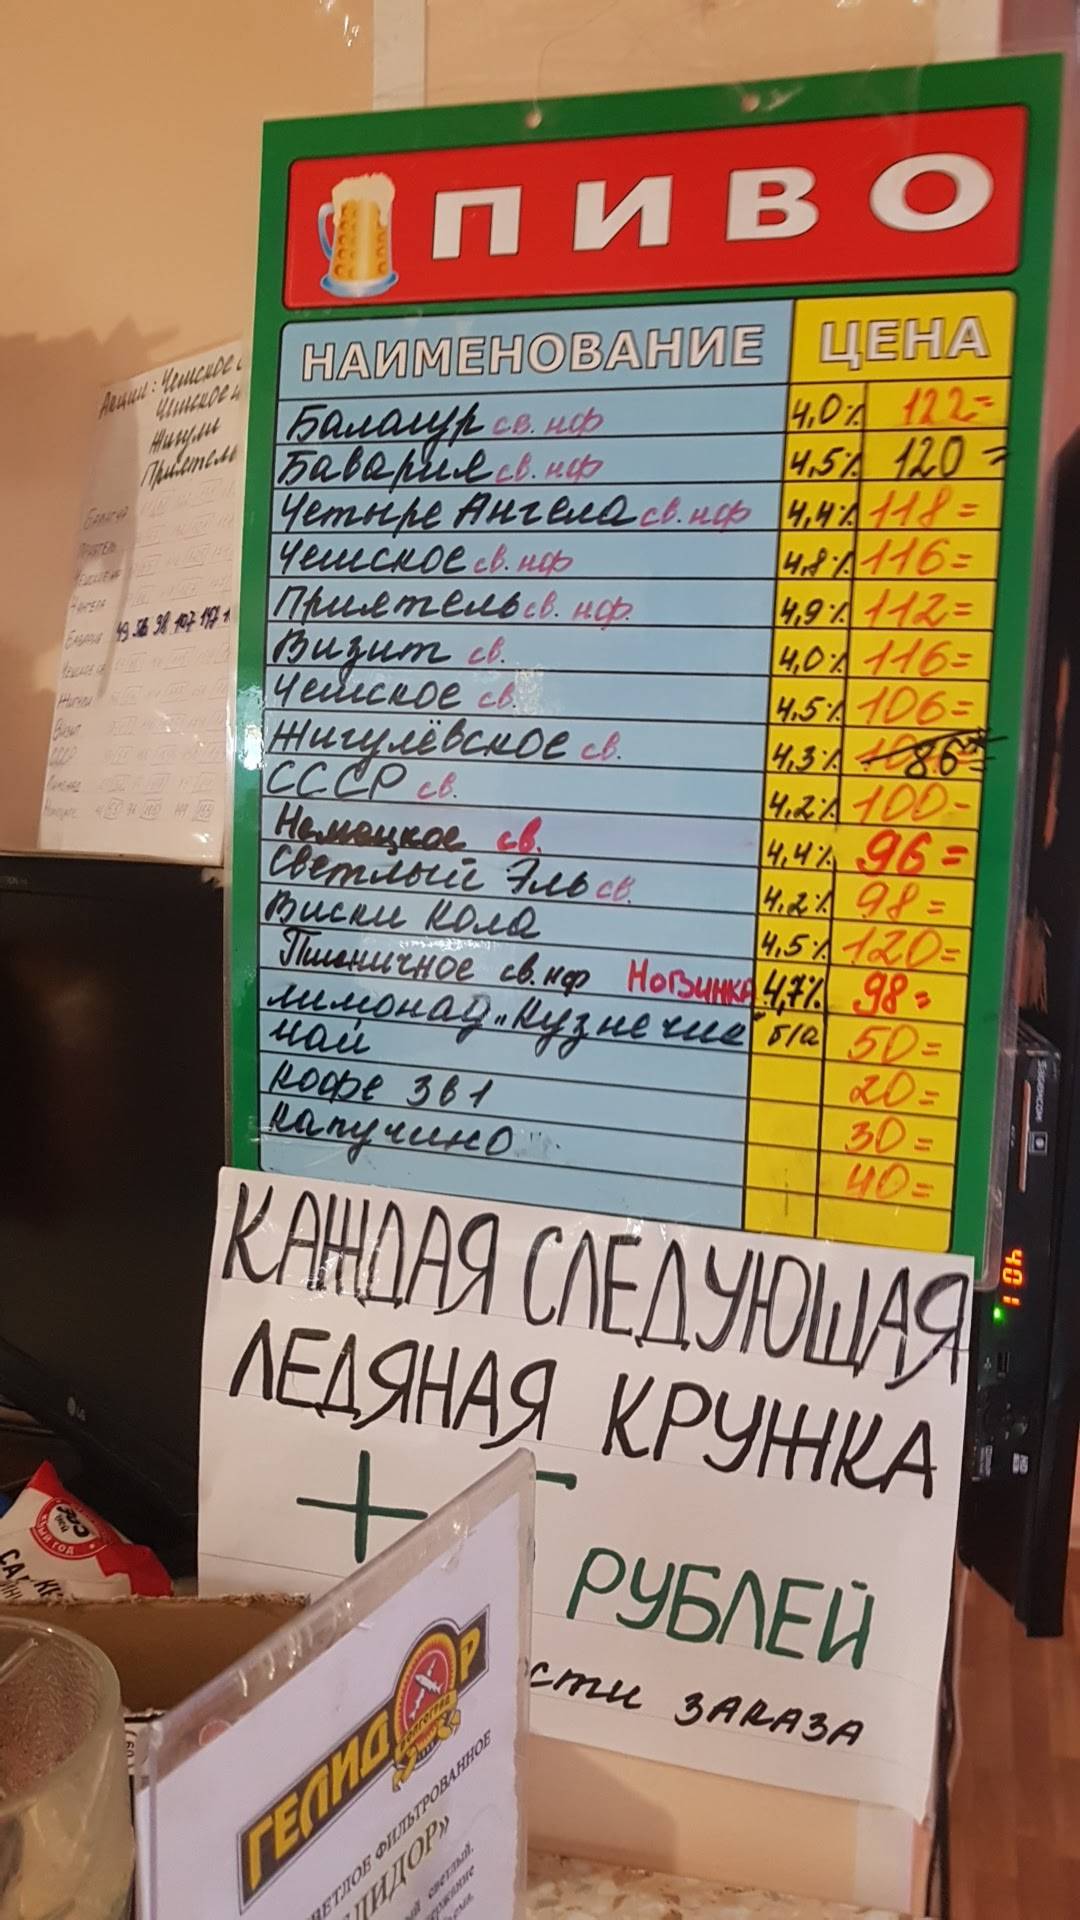 ПИВО
НАИМЕНОВАНИЕ ЦЕНА
Балагур св. нф 4,0% 122=
Бавария св. нф 4,5% 120=
Четыре Ангела св. нф 4,4% 118=
Чешское св. нф 4,8% 116=
Приятель св. нф. 4,9% 112=
Визит св. 4,0% 116=
Чешское св. 4,5% 106=
Жигулёвское св. 4,3% 86=
СССР св. 4,2% 100=
Немецкое св. 4,4% 96=
Светлый Эль св. 4,2% 98=
Виски Кола 4,5% 120=
Пшеничное св. нф Новинка 4,7% 98=
Лимонад „Кузнечик" б/а 50=
Чай 20=
Кофе 3в1 30=
Капучино 40=
КАЖДАЯ СЛЕДУЮЩАЯ
ЛЕДЯНАЯ КРУЖКА
+ РУБЛЕЙ
ости ЗАКАЗА
Акции: Чешское
Чешское
Жигули
Приятель
Балагур
Приятель
Бавария 49 56 98 107 147
Визит
СССР
ГЕЛИДОР
ВОЛГОГРАД
СВЕТЛОЕ ФИЛЬТРОВАННОЕ
ЛИДОР»
светлый.
LG